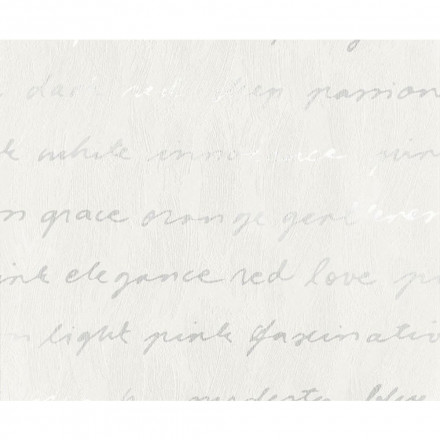 dark red deep passion
white innocence
grace orange
elegance red love
light pink fascinatio
modesty